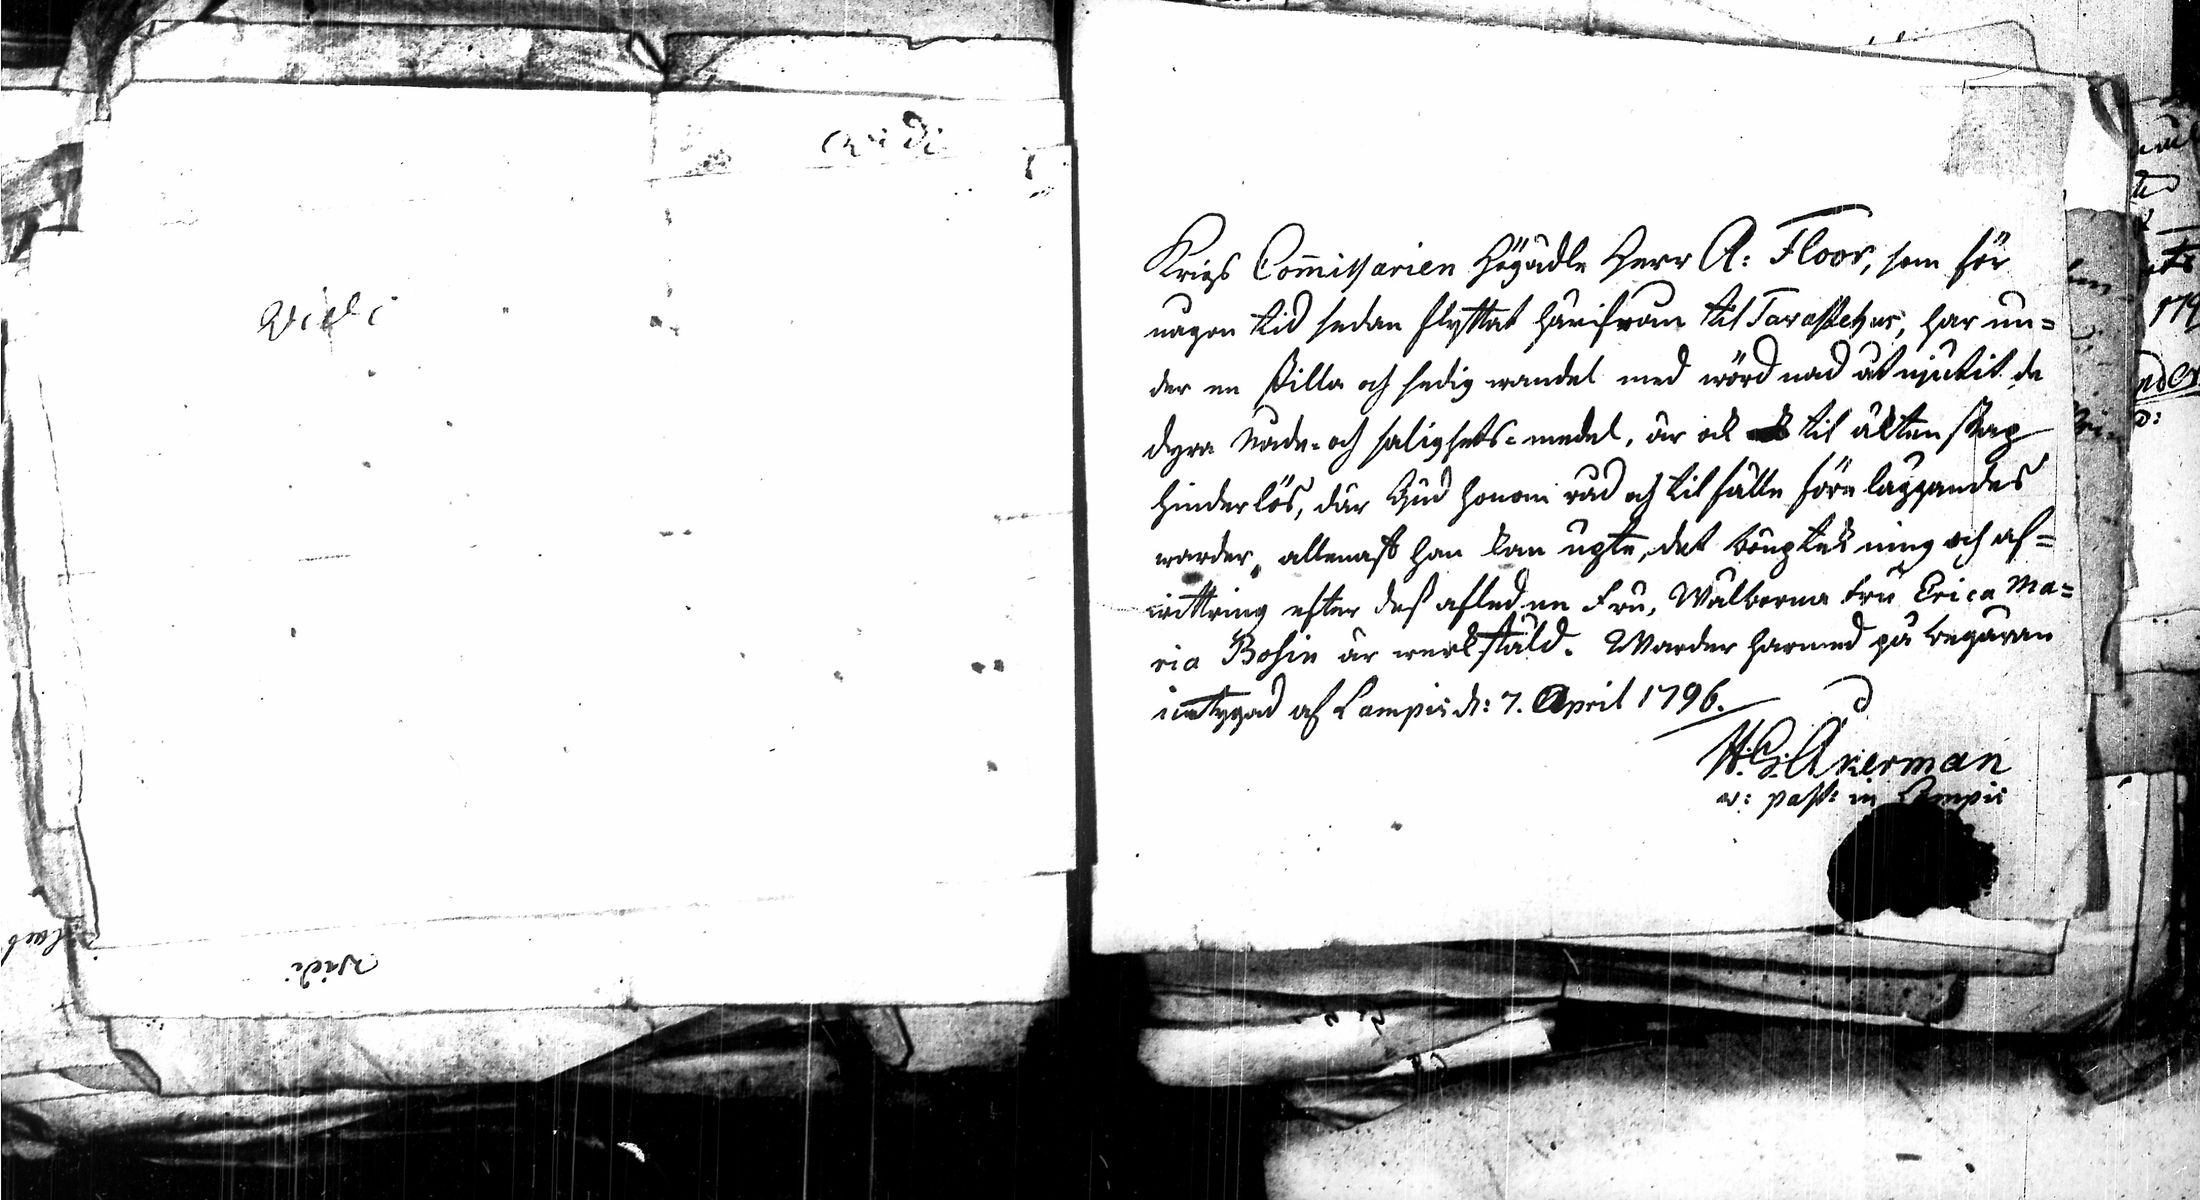 Vidi
Vidi
Vidi
Krigs Commissarien Högädle Herr A: Floor, som för
nagon tid sedan flyttat härifron til Tavastehus, har un=
der en stilla och sedig wandel med wördnad åtniutit de
dyra Nade- och salighets-medel, är ock til äktenskap
hinderlös, där Gud honom rad och tilfälle före läggandes
warder, allenast han kan upte, det bouptekning och af=
wittring efter dess afledne Fru, Wälborna Fru Erica Ma=
ria Bosin är werkstäld. Warder harmed på begäran
intygad af Lampis d: 7. April 1796.
H. G. Åkerman
v: past: in Lampis